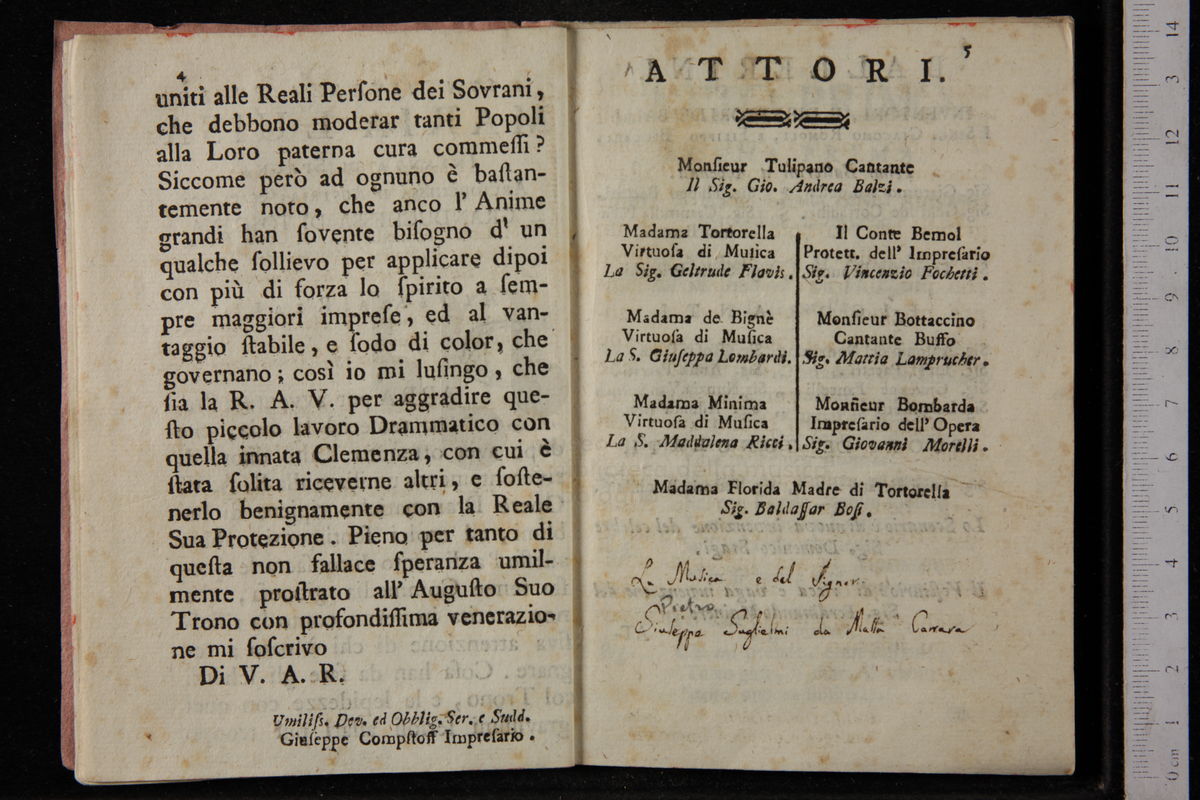 4
uniti alle Reali Perſone dei Sovrani,
che debbono moderar tanti Popoli
alla Loro paterna cura commeſſi?
Siccome però ad ognuno è baſtan-
temente noto, che anco l' Anime
grandi han ſovente biſogno d' un
qualche ſollievo per applicare dipoi
con più di forza lo ſpirito a ſem-
pre maggiori impreſe, ed al van-
taggio ſtabile, e ſodo di color, che
governano; così io mi luſingo, che
ſia la R. A. V. per aggradire que-
ſto piccolo lavoro Drammatico con
quella innata Clemenza, con cui è
ſtata ſolita riceverne altri, e ſoſte-
nerlo benignamente con la Reale
Sua Protezione. Pieno per tanto di
queſta non fallace ſperanza umil-
mente proſtrato all' Auguſto Suo
Trono con profondiſſima venerazio-
ne mi ſoſcrivo
Di V. A. R.
Umiliſs. Dev. ed Obblig. Ser. e Sudd.
Giuſeppe Compſtoff Impreſario.
5
ATTORI.
Monſieur Tulipano Cantante
Il Sig. Gio. Andrea Balzi.
Madama Tortorella
Virtuoſa di Muſica
La Sig. Geltrude Flavis.
Il Conte Bemol
Protett. dell' Impreſario
Sig. Vincenzio Fochetti.
Madama de Bignè
Virtuoſa di Muſica
La S. Giuſeppa Lombardi.
Monſieur Bottaccino
Cantante Buffo
Sig. Mattia Lamprucher.
Madama Minima
Virtuoſa di Muſica
La S. Maddalena Ricci.
Monſieur Bombarda
Impreſario dell' Opera
Sig. Giovanni Morelli.
Madama Florida Madre di Tortorella
Sig. Baldaſſar Boſi.
La Musica e del Signor
Pietro
Giuseppe Guglielmi da Massa Carrara
14
3
12
11
10
9
8
7
6
5
4
3
2
1
0 cm